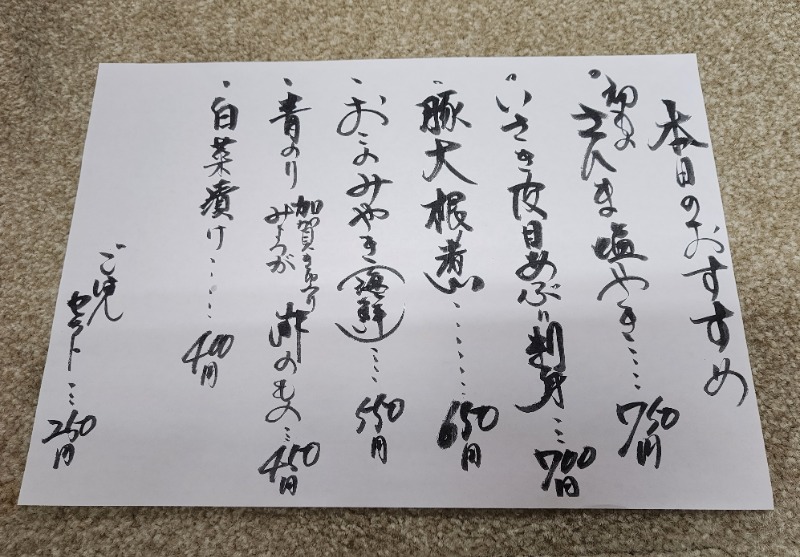 本日のおすすめ
・初もの さんま塩やき‥‥750円
・いさき皮目あぶり刺身‥‥700円
・豚大根煮‥‥‥‥650円
・おこのみやき(海鮮)‥‥550円
・青のり 加賀きゅうり みょうが 酢のもの‥450円
・白菜漬け‥‥‥400円
ごはんセット‥‥250円